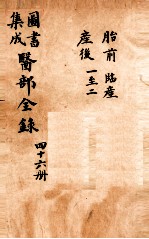 胎前 臨產
產後 一至二
圖書
集成
醫部全錄
四十六册